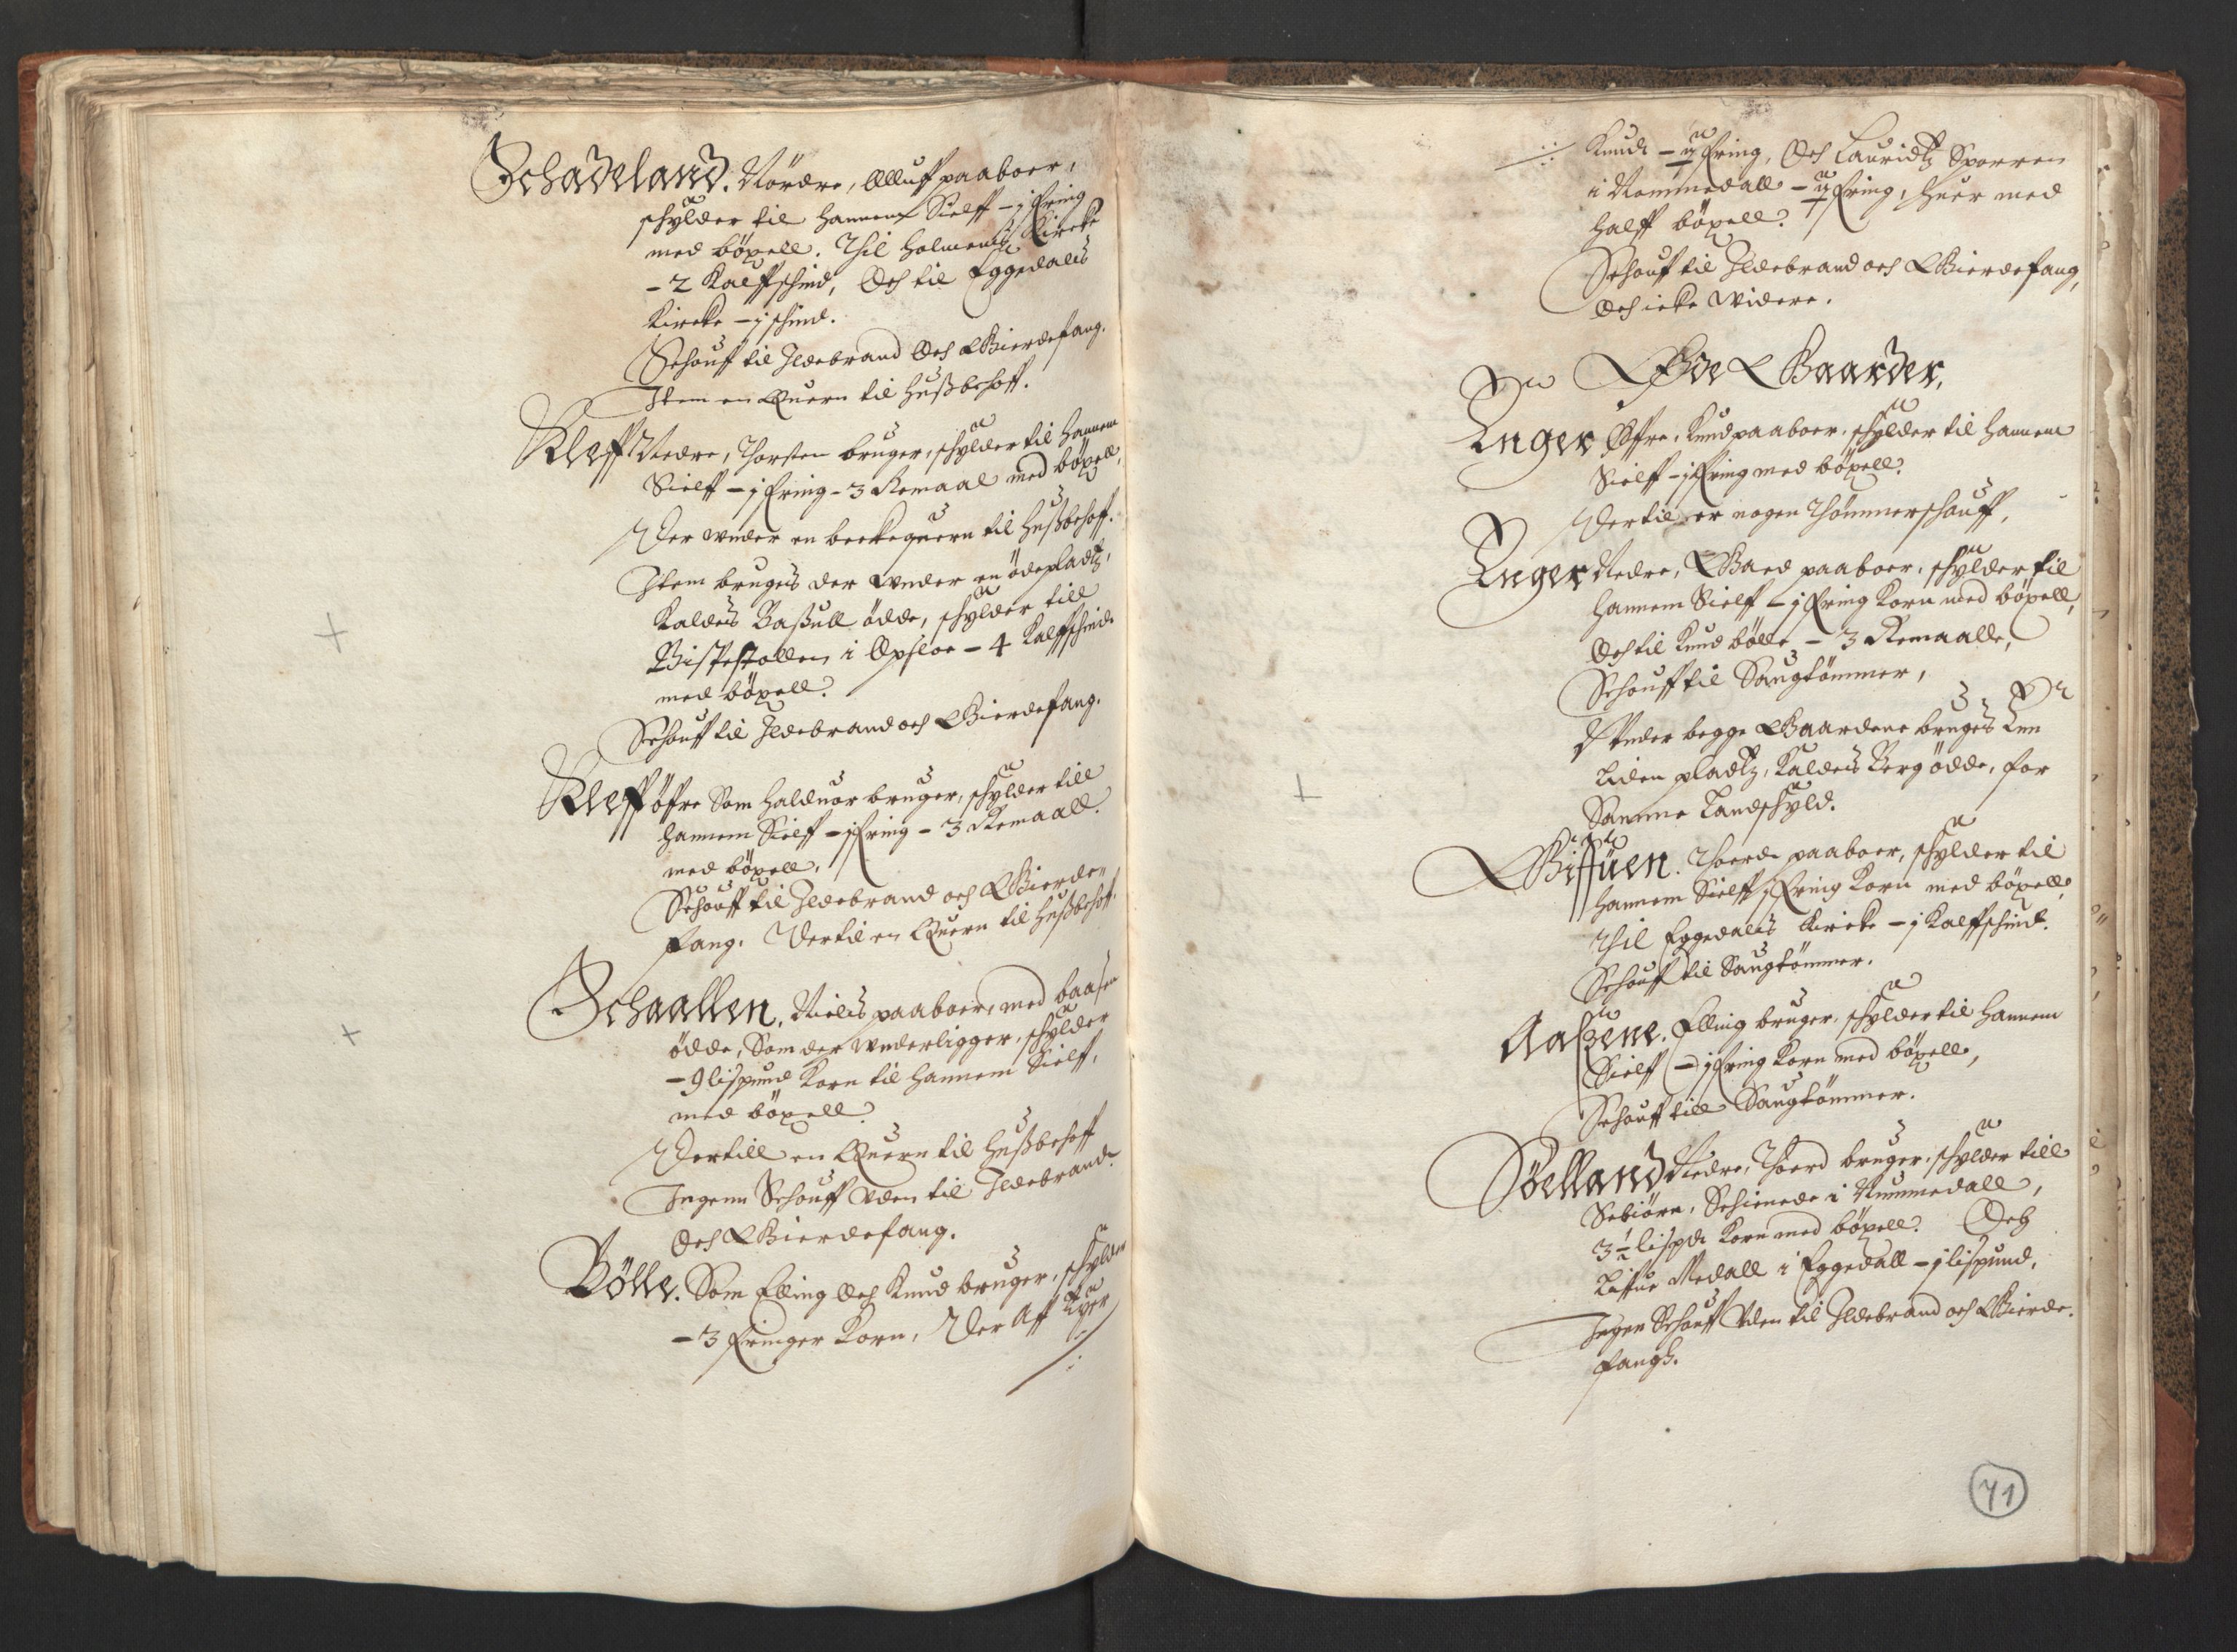 Schadeland. Nördre, Alluf paaboer,
schylder til hannem Sielff – j fring
med böxell. Thil Holmens Kircke
– 2 Kalffschind, Och til Eggedals
Kircke – j schind.
Schouff til Ildebrand Och Gierdefang.
Item en Quern til Hußbehoff.
Kleff Nedre, Thorsten bruger, schylder til hannem
Sielff – j fring – 3 Remaal med böxell,
Der under en beckequern til Hußbehoff.
Item brugis der under en ödepladtz,
kaldis Baßull ödde, schylder till
Bispestollen i Opsloe – 4 Kalffschind
med böxell.
Schouff til Ildebrand och Gierdefang.
Kleff öfre Som Halduor bruger, schylder till
hannem Sielff – j fring – 3 Remaall.
med böxell,
Schouff til Ildebrand och Gierde„
fang. Dertil en Quern til Hußbehoff.
Schaallen, Niels paaboer, med baasen
ödde, Som der underligger, schylder
– 9 lispund Korn til hannem Sielff,
med böxell.
Dertill en Quern til Hußbehoff
Ingenn Schouff uden til Ildebrand
Och Gierdefang.
Bölle. Som Elling Och Knud bruger, schylder
– 3 fringer Korn, Der Aff Ejer
Knud – ½ fring, Och Lauridtz Sporren
i Nommedall – ½ fring, huer med
halff böxell.
Schouff til Ildebrand och Gierdefang,
Och icke videre.
Öde Gaarder,
Enger Öffre, Knud paaboer, schylder til hannem
Sielff – j fring med böxell.
Dertil er nogen Thömmerschouff,
Enger Nedre, Gaed paaboer, schylder til
hannem Sielff – j fring Korn med böxell,
Och til Knud bölle – 3 Remaalle,
Schouff til Saugtömmer,
Under begge Gaardene brugis Een
liden pladtz, kaldis Berg ödde, for
Samme Landschyld.
Giffuen. Thoerd paaboer, schylder til
hannem Sielff j fring Korn med böxell,
Thil Eggedals Kircke – j Kalffschind.
Schouff til Saugtömmer.
Aaszene. Elling bruger, schylder til hannem
Sielff – j fring Korn med böxell,
Schouff till Saugtömmer.
Söelland Nedre, Thoerd bruger, schylder till
Sebiörn, Schienede i Nummedall,
3 ½ lispd Korn med böxell. Och
Liffue Medall i Eggedall – j lispund,
Ingen Schouff Uden til Ildebrand och Gierde„
fangh.
71